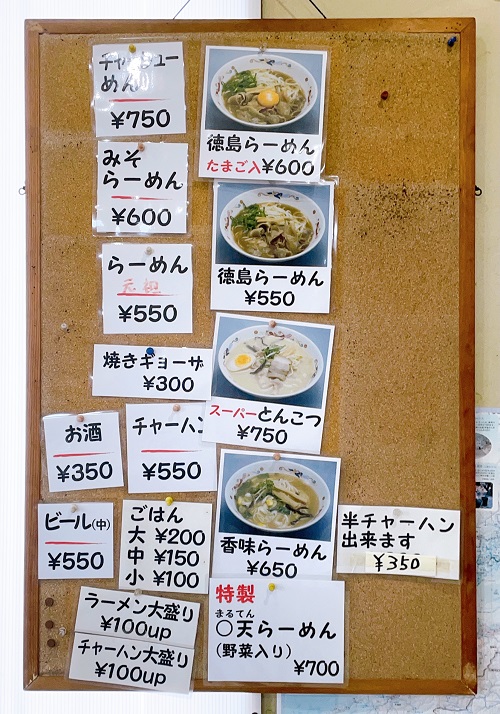 チャーシュー
めん
¥750
みそ
らーめん
¥600
らーめん
¥550
焼きギョーザ
¥300
お酒
¥350
チャーハン
¥550
ビール(中)
¥550
ごはん
大 ¥200
中 ¥150
小 ¥100
ラーメン大盛り
¥100up
チャーハン大盛り
¥100up
徳島らーめん
たまご入¥600
徳島らーめん
¥550
スーパーとんこつ
¥750
香味らーめん
¥650
特製
まるてん
〇天らーめん
(野菜入り)
¥700
半チャーハン
出来ます
¥350